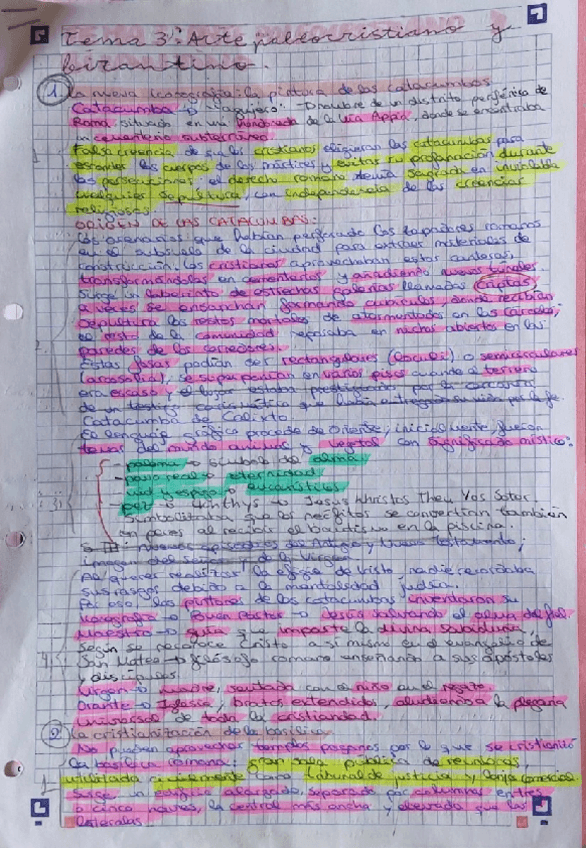 Tema 3: Arte paleocristiano y
bizantino.
1 La nueva iconografía: la pintura de las catacumbas
Catacumba → "agujero". → nombre de un distrito periférico de
Roma situado en una hondonada de la Via Appia, donde se encontraba
un cementerio subterráneo
Falsa creencia de que los cristianos eligieran las catacumbas para
esconder los cuerpos de los mártires y evitar su profanación durante
las persecuciones: el derecho romano tenía sagrada en inviolable
cualquier sepultura con independencia de las creencias
religiosas.
ORIGEN DE LAS CATACUMBAS:
Los arenarios que habían perforado los romanos
en el subsuelo de la ciudad para extraer materiales de
construcción. Los cristianos aprovechaban estos
transformándolos en cementerios y añadiendo nuevos túneles.
Surge un laberinto de estrechas galerías llamadas criptas
a veces se ensanchan formando cubículos, donde recibían
sepultura los restos mortales de atormentados en las cárceles;
el resto de la comunidad reposaba en nichos abiertos en las
paredes de los corredores.
Estas fosas podían ser rectangulares (loculi) o semicirculares
(arcosolia), se superponían en varios pisos cuando el terreno
era escaso,
Catacumba de Calixto.
El lenguaje gráfico procede de Oriente; inicialmente fueron
temas del mundo animal y vegetal con significado místico:
- paloma → símbolo del alma
- pavo real → eternidad
- vid y espiga → eucarísticos
- pez → Ichthys → Jesus Khristos Theu Yos Soter.
Simbolizaba que los neófitos se convertían también
en peces al recibir el bautismo en la piscina.
Al querer realizar la efigie de Cristo, nadie recordaba
sus rasgos debido a la mentalidad judía.
Por eso, los pintores de las catacumbas inventaron su
iconografía → Buen Pastor → Jesús salvando el alma del fiel
Maestro → guía que imparte la divina sabiduría,
según se reconoce Cristo a sí mismo en el evangelio de
San Mateo → enseñando a sus apóstoles
y discípulos.
Virgen → madre, sentada con el niño en el regazo.
Orante → Iglesia, brazos extendidos, aludiendo a la plegaria
universal de toda la cristiandad.
2 La cristianización de la basílica
No pueden aprovechar templos paganos por lo que se cristianizó
la basílica romana: gran sala pública de reuniones,
utilizada civilmente como tribunal de justicia y lonja comercial
Surge un alargado, separado por columnas en tres
o cinco naves, la central más ancha y elevada que las
laterales.